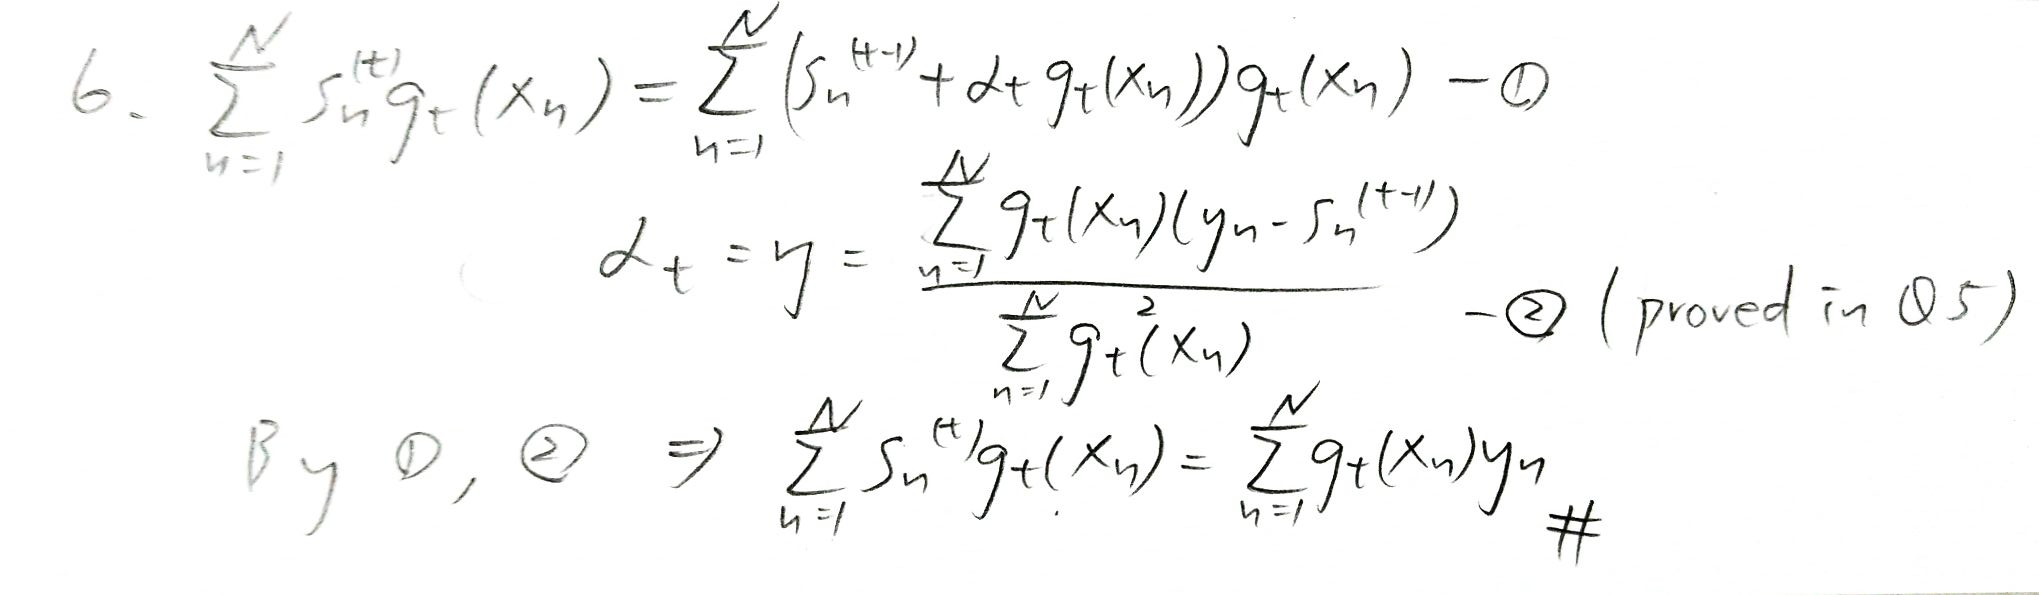 6. $\sum_{n=1}^{N} s_n^{(t)} g_t(x_n) = \sum_{n=1}^{N} (s_n^{(t-1)} + \alpha_t g_t(x_n)) g_t(x_n)$ — ①
$\alpha_t = \eta = \frac{\sum_{n=1}^{N} g_t(x_n)(y_n - s_n^{(t-1)})}{\sum_{n=1}^{N} g_t^2(x_n)}$ — ② (proved in Q5)
By ①, ② ⇒ $\sum_{n=1}^{N} s_n^{(t)} g_t(x_n) = \sum_{n=1}^{N} g_t(x_n) y_n$ #